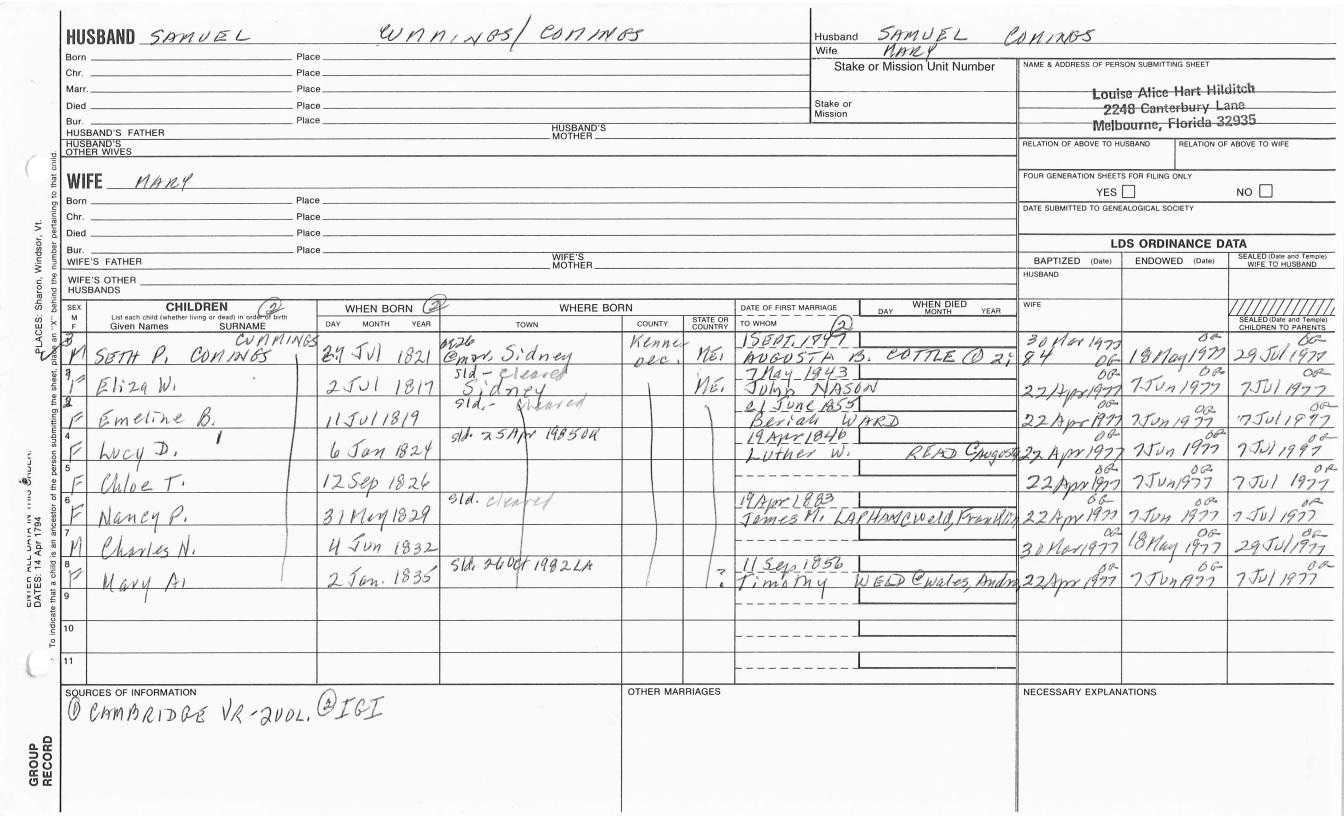 HUSBAND SAMUEL CUMMINGS/COMINGS
Born Place
Chr. Place
Marr. Place
Died Place
Bur. Place
HUSBAND'S FATHER HUSBAND'S MOTHER
HUSBAND'S OTHER WIVES
Husband SAMUEL COMINGS
Wife MARY
Stake or Mission Unit Number
Stake or Mission
NAME & ADDRESS OF PERSON SUBMITTING SHEET
Louise Alice Hart Hilditch
2248 Canterbury Lane
Melbourne, Florida 32935
RELATION OF ABOVE TO HUSBAND RELATION OF ABOVE TO WIFE
FOUR GENERATION SHEETS FOR FILING ONLY
YES NO
DATE SUBMITTED TO GENEALOGICAL SOCIETY
WIFE MARY
Born Place
Chr. Place
Died Place
Bur. Place
WIFE'S FATHER WIFE'S MOTHER
WIFE'S OTHER HUSBANDS
LDS ORDINANCE DATA
BAPTIZED (Date) ENDOWED (Date) SEALED (Date and Temple) WIFE TO HUSBAND
HUSBAND
WIFE
SEALED (Date and Temple) CHILDREN TO PARENTS
SEX M F CHILDREN 2 WHEN BORN 2 WHERE BORN DATE OF FIRST MARRIAGE WHEN DIED
List each child (whether living or dead) in order of birth
Given Names SURNAME DAY MONTH YEAR TOWN COUNTY STATE OR COUNTRY TO WHOM 2 DAY MONTH YEAR
CUMMINGS Kenne 1 SEPT. 1847 30 Mar 1977 OG OG
M SETH P. COMINGS 27 Jul 1821 Sidney bec. ME. AUGUSTA B. COTTLE 1 2; 84 OG 18 May 1977 29 Jul 1977
Sld - cleared 7 May 1943
F Eliza W. 2 Jul 1817 Sidney ME. John NASON 22 Apr 1977 7 Jun 1977 7 Jul 1977
Sld.- cleared 21 June 1855
F Emeline B. 11 Jul 1819 Beriah WARD 22 Apr 1977 7 Jun 1977 7 Jul 1977
4 Sld. 25 Apr 1985 OK 19 Apr 1846
F Lucy D. 6 Jan 1824 Luther W. READ 22 Apr 1977 7 Jun 1977 7 Jul 1977
5
F Chloe T. 12 Sep 1826 22 Apr 1977 7 Jun 1977 7 Jul 1977
6 Sld. cleared 19 Apr 1883
F Nancy P. 31 May 1829 James M. LAPHAM Weld, Franklin 22 Apr 1977 7 Jun 1977 7 Jul 1977
7
M Charles N. 4 Jun 1832 30 Mar 1977 18 May 1977 29 Jul 1977
8 Sld. 26 Oct 1982 LA 11 Sep 1856
F Mary A. 2 Jan. 1835 ? Timothy WELD @Wales, Andro 22 Apr 1977 7 Jun 1977 7 Jul 1977
9
10
11
SOURCES OF INFORMATION OTHER MARRIAGES NECESSARY EXPLANATIONS
1 CAMBRIDGE VR-2VOL. 2 IGI
PLACES: Sharon, Windsor, Vt.
DATES: 14 Apr 1794
To indicate that a child is an ancestor of the person submitting the sheet, place an "X" behind the number pertaining to that child.
GROUP RECORD